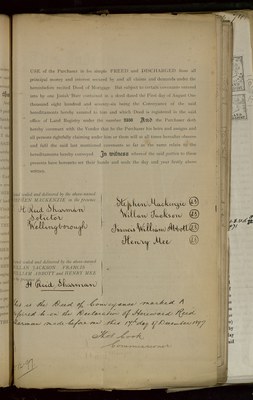 USE of the Purchaser in fee simple FREED and DISCHARGED from all
principal money and interest secured by and all claims and demands under the
hereinbefore recited Deed of Mortgage But subject to certain covenants entered
into by one Josiah Starr contained in a deed dated the First day of August One
thousand eight hundred and being the Conveyance of the said
hereditaments hereby assured to him and which Deed is registered in the said
office of Land Registry under the number And the Purchaser doth
hereby covenant with the Vendor that he the Purchaser his heirs and assigns and
all persons rightfully claiming under him or them will at all times hereafter observe
and fulfil the said last mentioned covenants so far as the same relate to the
hereditaments hereby conveyed In witness whereof the said parties to these
presents have hereunto set their hands and seals the day and year firstly above
written
sealed and delivered by the above-named
STEPHEN MACKENZIE in the presence
H Reid Sharman
Solicitor
Wellingborough
Stephen Mackenzie LS
William Jackson LS
Francis William Abbott LS
Henry Mee LS
sealed and delivered by the above-named
WILLIAM JACKSON FRANCIS
WILLIAM ABBOTT and HENRY MEE
H Reid Sharman
This is the Deed of Conveyance marked A
referred to in the Declaration of Heward Reid
Sharman made before me this 17th day of December 1897
Cook
Commissioner